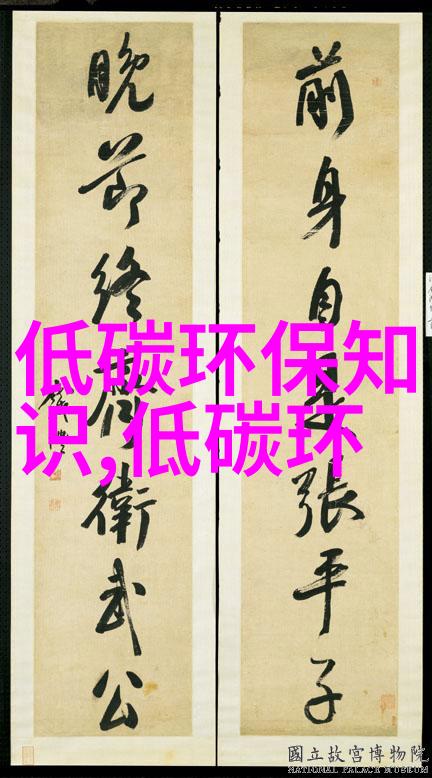 前身自是張平子
晚節終
衛武公
低碳环保知
识,低碳环
國立故宮博物院
NATIONAL PALACE MUSEUM